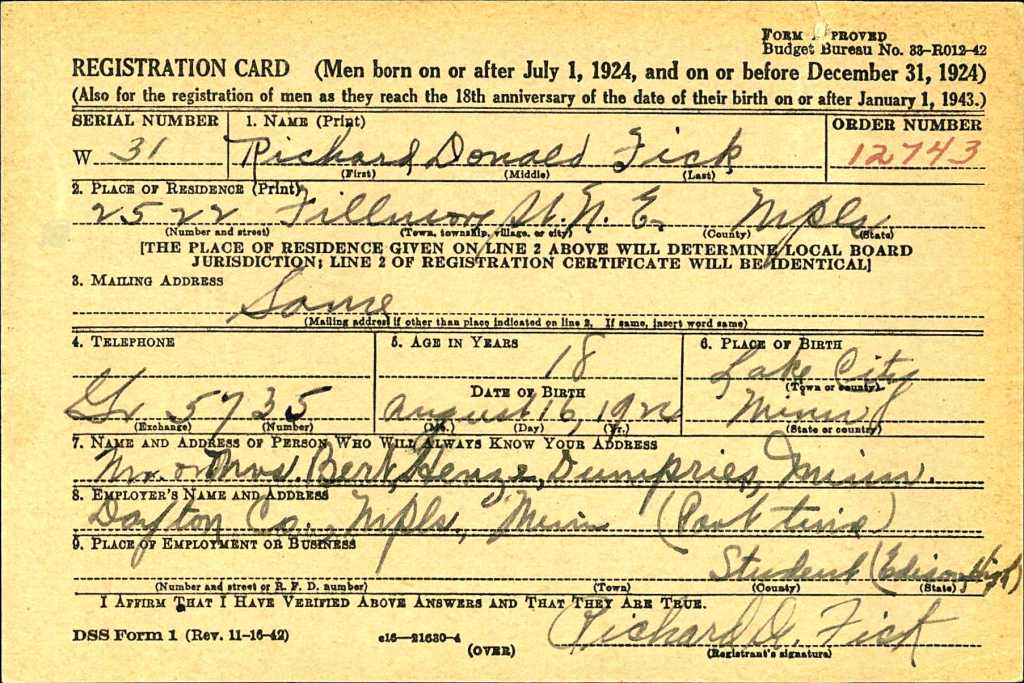 FORM APPROVED
Budget Bureau No. 33-R012-42
REGISTRATION CARD (Men born on or after July 1, 1924, and on or before December 31, 1924)
(Also for the registration of men as they reach the 18th anniversary of the date of their birth on or after January 1, 1943.)
SERIAL NUMBER 1. NAME (Print) ORDER NUMBER
W 31 Richard Donald Fick 12743
(First) (Middle) (Last)
2. PLACE OF RESIDENCE (Print)
2522 Fillmore St. N. E. Mpls
(Number and street) (Town, township, village, or city) (County) (State)
[THE PLACE OF RESIDENCE GIVEN ON LINE 2 ABOVE WILL DETERMINE LOCAL BOARD
JURISDICTION; LINE 2 OF REGISTRATION CERTIFICATE WILL BE IDENTICAL]
3. MAILING ADDRESS
Same
(Mailing address if other than place indicated on line 2. If same, insert word same)
4. TELEPHONE 5. AGE IN YEARS 6. PLACE OF BIRTH
18 Lake City
DATE OF BIRTH (Town or county)
Gr 5735 August 16, 1924 Minn
(Exchange) (Number) (Mo.) (Day) (Yr.) (State or country)
7. NAME AND ADDRESS OF PERSON WHO WILL ALWAYS KNOW YOUR ADDRESS
Mr. or Mrs. Bert Henze, Dumpries, Minn.
8. EMPLOYER'S NAME AND ADDRESS
Dayton Co., Mpls, Minn (Part time)
9. PLACE OF EMPLOYMENT OR BUSINESS
Student (Edison High)
(Number and street or R. F. D. number) (Town) (County) (State)
I AFFIRM THAT I HAVE VERIFIED ABOVE ANSWERS AND THAT THEY ARE TRUE.
DSS Form 1 (Rev. 11-16-42) c16—21630-4 Richard D. Fick
(OVER) (Registrant's signature)